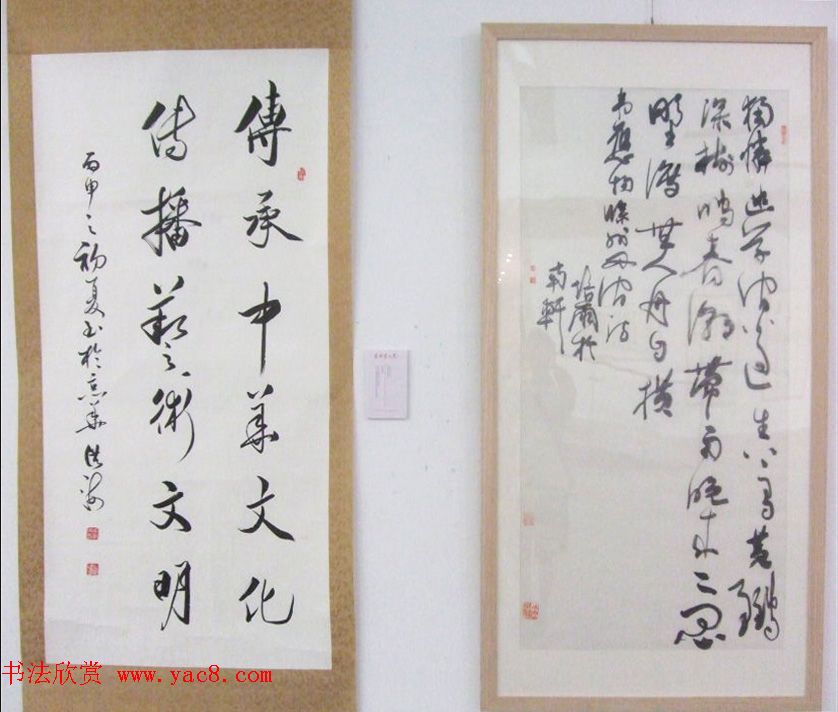 傳承中華文化
传播藝術文明
丙申之初夏书於京華
獨憐幽草澗边生上有黄鸝
深樹鳴春潮帶雨晚来急
野渡無人舟自横
韦應物滁州西澗诗
於
南軒
书法欣赏 www.yac8.com